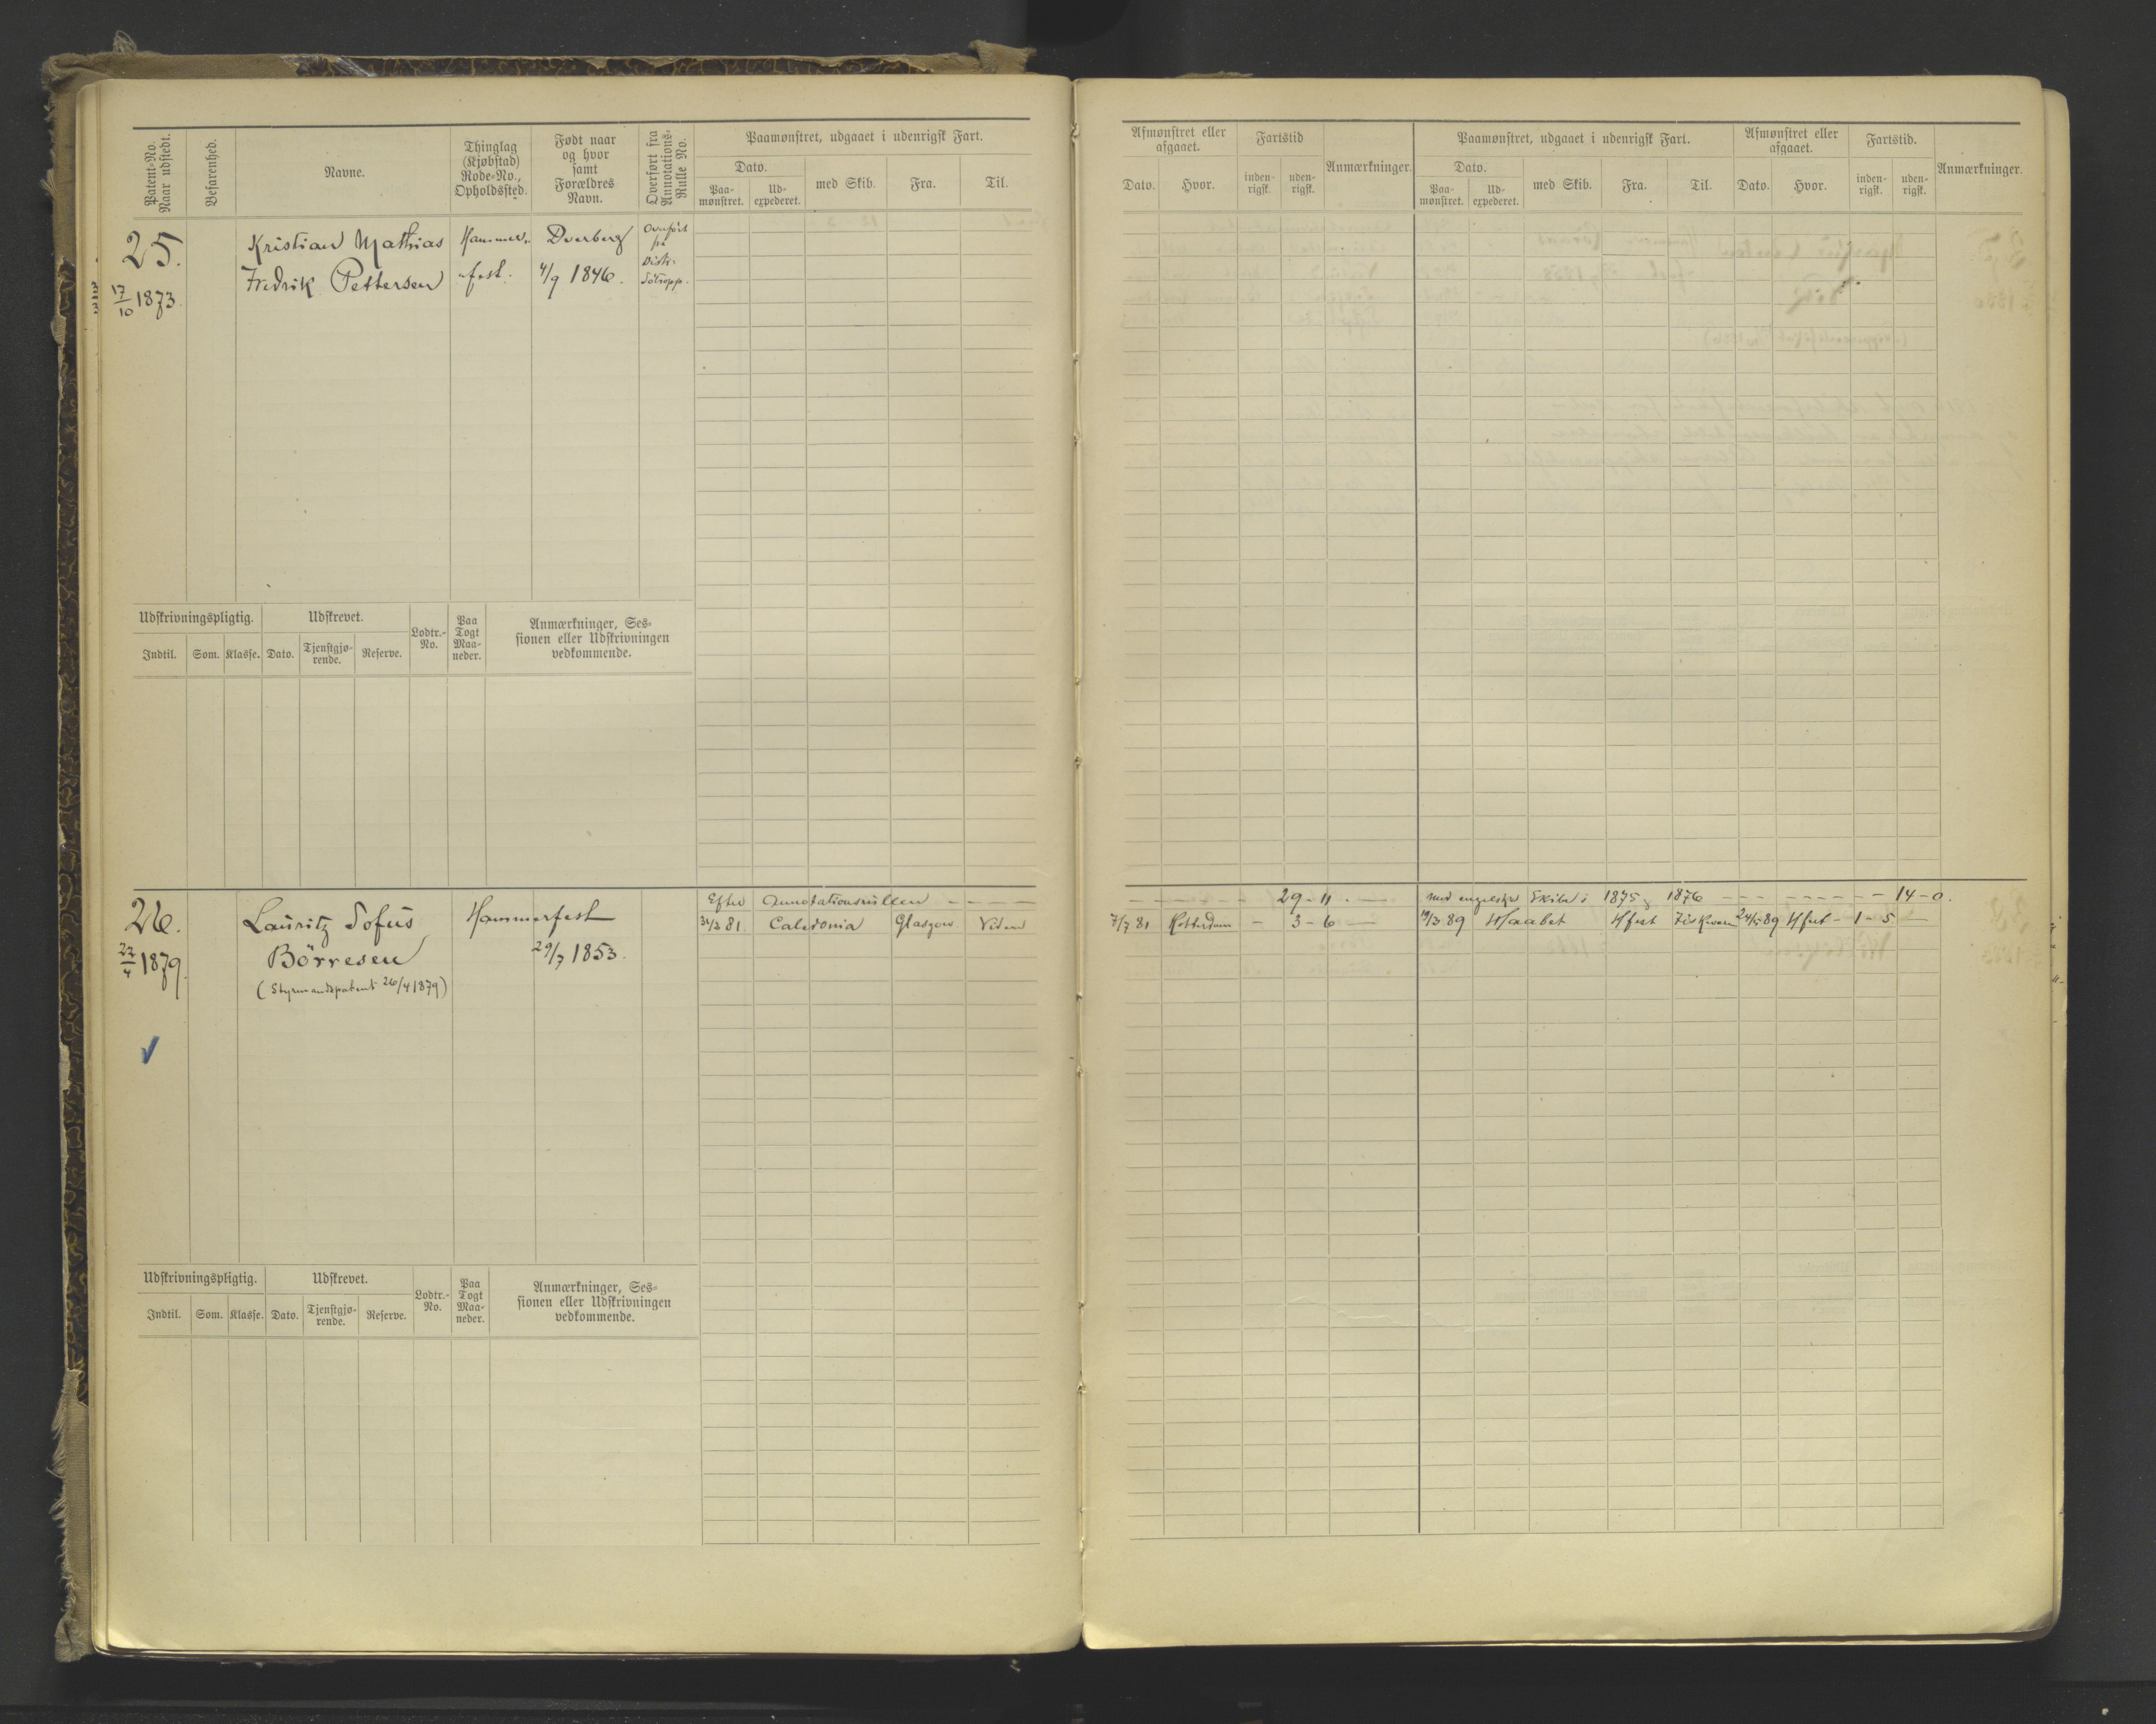 Patent-No. Naar udstedt.
Befarenhed.
Navne.
Thinglag (Kjøbstad) Rode-No., Opholdssted.
Født naar og hvor samt Forældres Navn.
Overført fra Annotations-Rulle No.
Paamønstret, udgaaet i udenrigsk Fart.
Dato.
Paa-mønstret.
Ud-expederet.
med Skib.
Fra.
Til.
25.
17/10 1873
Kristian Mathias
Fredrik Pettersen
Hammer-
fest.
Dverberg
4/9 1846.
Udskrivningspligtig.
Udskrevet.
Lodtr.-No.
Paa Togt Maa-neder.
Anmærkninger, Ses-sionen eller Udskrivningen vedkommende.
Indtil.
Som.
Klasse.
Dato.
Tjenstgjø-rende.
Reserve.
26.
1879.
Lauritz Sofus
Börresen
(Styrmandspatent 26/4 1879)
Hammerfest
29/7 1853.
Efter Annotationsrullen - - - -
81. Caledonia Glasgow
Udskrivningspligtig.
Udskrevet.
Lodtr.-No.
Paa Togt Maa-neder.
Anmærkninger, Ses-sionen eller Udskrivningen vedkommende.
Indtil.
Som.
Klasse.
Dato.
Tjenstgjø-rende.
Reserve.
Afmønstret eller afgaaet.
Fartstid
Anmærkninger.
Paamønstret, udgaaet i udenrigsk Fart.
Afmønstret eller afgaaet.
Fartstid.
Anmærkninger.
Dato.
Hvor.
inden-rigsk.
uden-rigsk.
Dato.
Paa-mønstret.
Ud-expederet.
med Skib.
Fra.
Til.
Dato.
Hvor.
inden-rigsk.
uden-rigsk.
- - - - - 29 - 11. - med engelske Skibe i 1875 1876 - - - - - 14 - 0.
7/7 81 Rotterdam - 3 - 6 - 19/3 89 Haabet Hfest 89 Hfest - 1 - 5 -